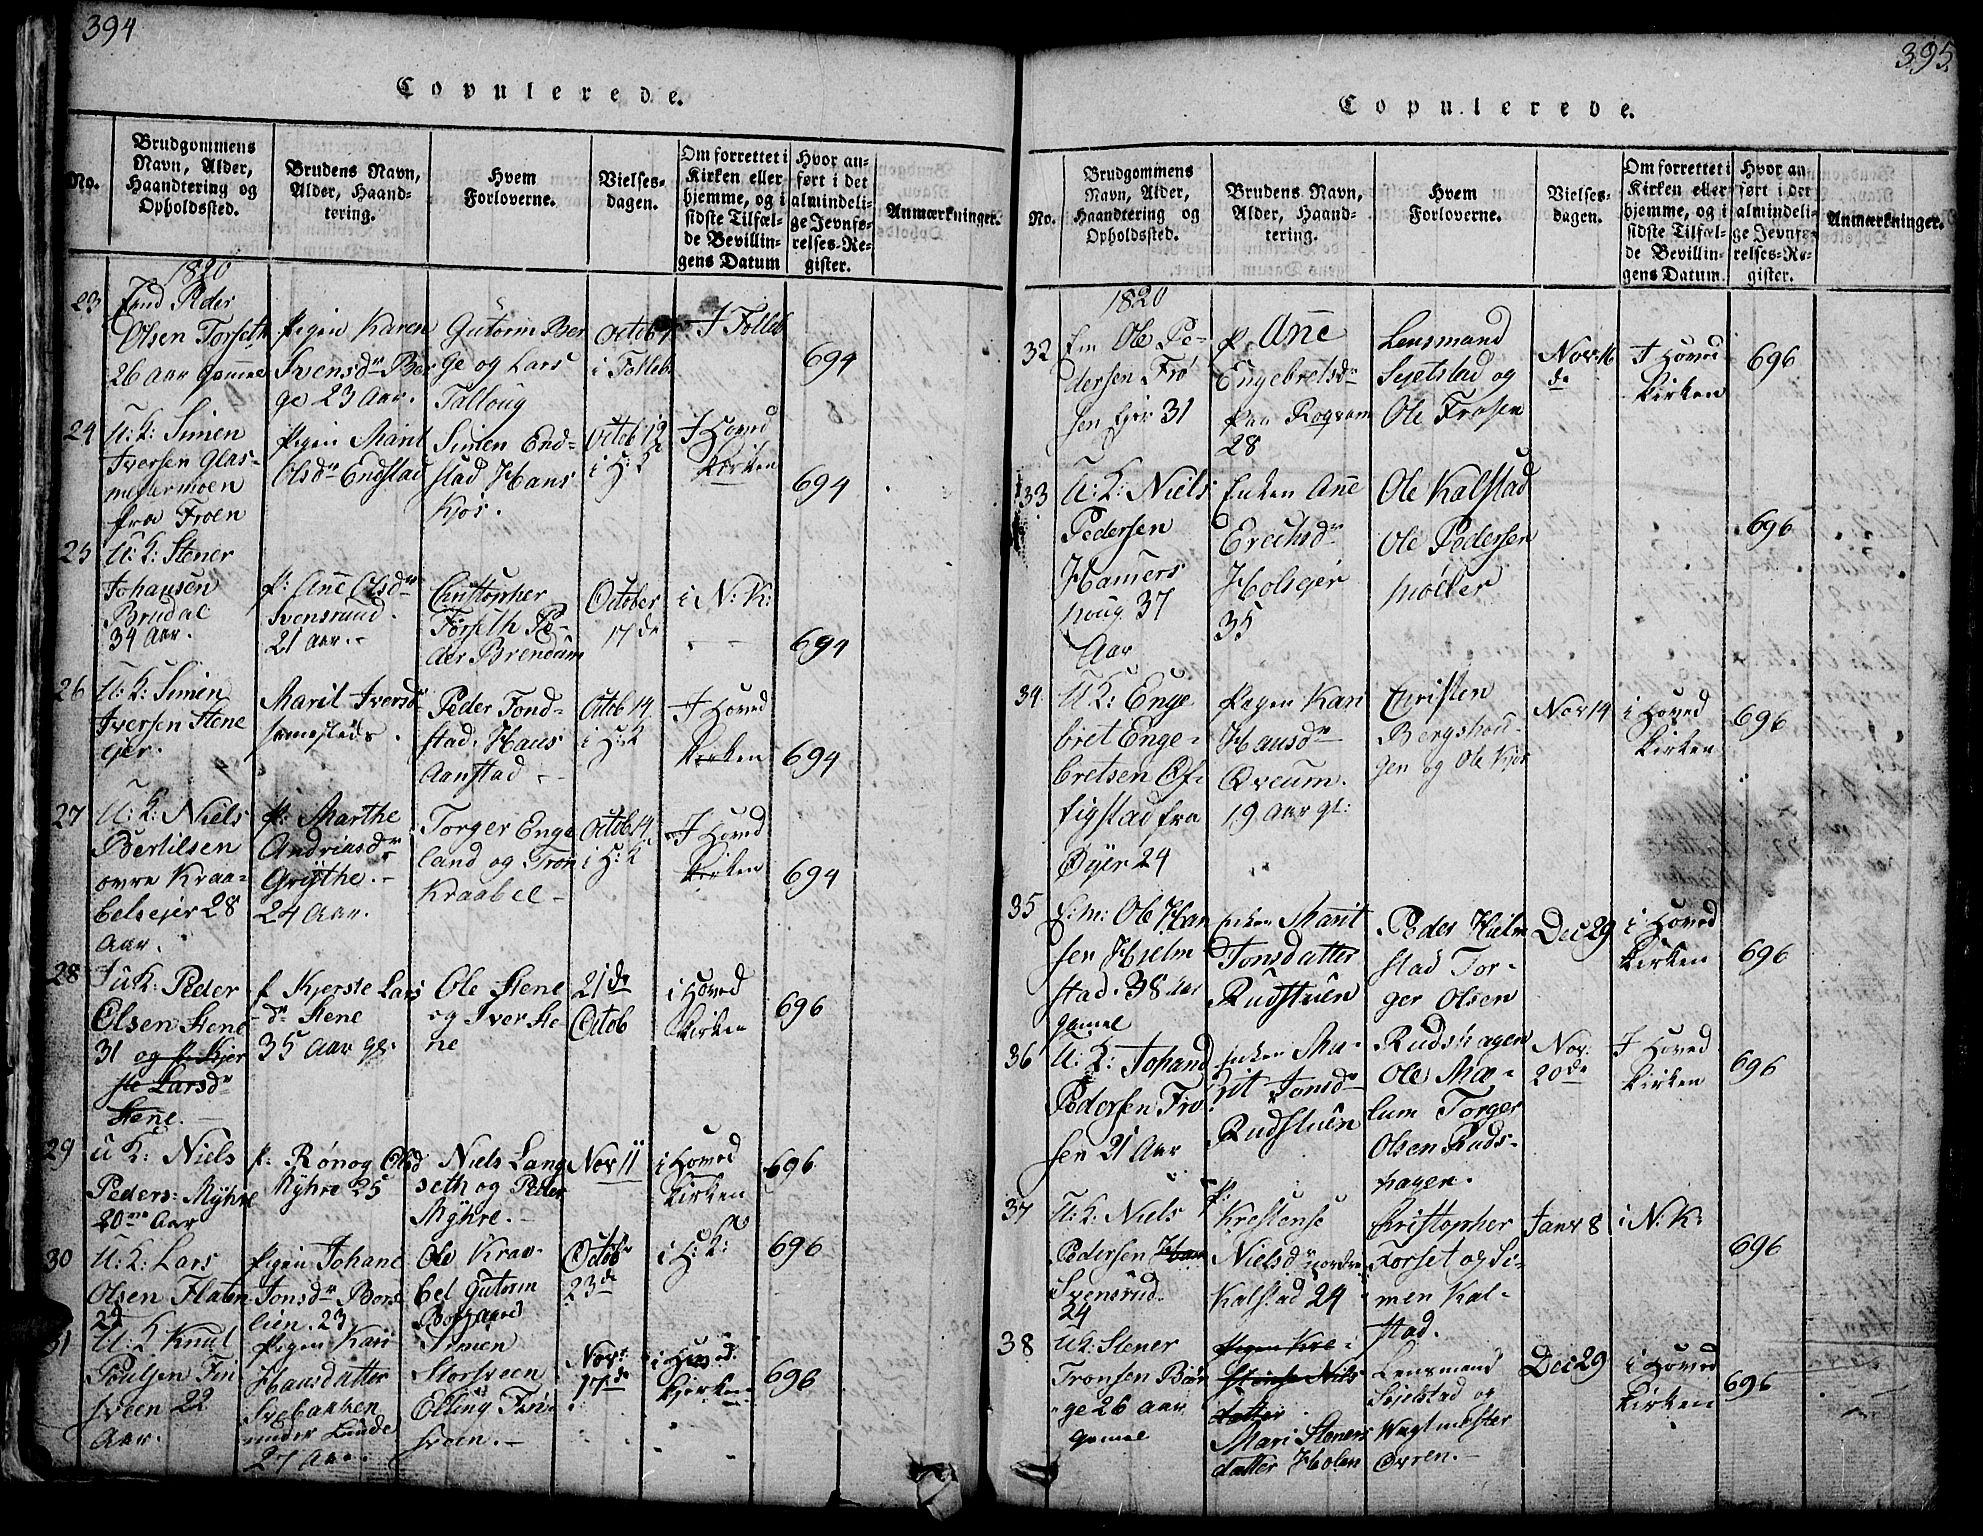 394
Copulerede.
No.
Brudgommens
Navn, Alder,
Haandtering og
Opholdssted.
Brudens Navn,
Alder, Haand-
tering.
Hvem
Forloverne.
Vielses-
dagen.
Om forrettet i
Kirken eller
hjemme, og i
sidste Tilfæl-
de Bevillin-
gens Datum
Hvor an-
ført i det
almindeli-
ge Jevnfø-
relses-Re-
gister.
Anmærkninger.
1820
23
Peder
Olsen Forseth
26 Aar Gamel
Pigen Karen
Svensdr Ber
ge 23 Aar.
Gutorm Ber
ge og Lars
Talloug
Octob
i Folleb
I Folleb
694
24
U: K: Simen
Iversen Glas-
mestermoen
fra Froen
Pigen Marit
Olsdr Endstad
Simen End-
stad Hans
Kjos.
Octob 12
i H: K
I Hoved
Kirken
694
25
U: K: Stener
Johansen
Brudal
34 Aar.
P: Ane Olsdr
Svensrud.
21 Aar.-
Christopher
Forseth Pe-
der Brendum
October
17de
i N: K:
694
26
U: K: Simen
Iversen Stene
ejer.
Marit Iversdr
samesteds.
Peder Fond-
stad. Hans
Aanstad -
Octob 14.
i H: K
I Hoved
Kirken
694
27
U: K: Niels
Bertilsen
ovre Kraa-
belsejer 28
Aar.
P: Marthe
Andriasdr
Grythe.-
24 Aar.
Torger Enge
land og Tron
Kraabel -
Octob 14.
i H: K
I Hoved
Kirken
694
28
U: K: Peder
Olsen Stene
31 og P: Kjer
ste Larsdr
Stene.
P Kjerste Lars
dr Stene
35 Aar gl:
Ole Stene
og Iver Ste
ne
21de
Octob
i Hoved
Kirken
696
29
U K: Niels
Peders: Myhre
20 Aar
P: Rønog Olsd
Myhre 25
Niels Lang
seth og Peder
Myhre.-
Nov 11
i Hoved
Kirken
696
30
U: K: Lars
Olsen Flaten
Pigen Johane
Jonsdr Bors
lien. 23
Ole Kraa-
bel Gutorm
Octobr
23de
i H: K:
696
31
U: K Knut
Poulsen Fin
sveen 22
Aar.
Pigen Kari
Hansdatter
under Linde
27 Aar.
Simen
Storsveen
Elling Fin
sveen.-
Novr
17de
i Hoved
Kirken
696
395
Copulerede.
No.
Brudgommens
Navn, Alder,
Haandtering og
Opholdssted.
Brudens Navn,
Alder, Haand-
tering.
Hvem
Forloverne.
Vielses-
dagen.
Om forrettet i
Kirken eller
hjemme, og i
sidste Tilfæl-
de Bevillin-
gens Datum.
Hvor an
ført i det
almindeli-
ge Jevnfø-
relses-Re-
gister.
Anmærkninger.
1820
32
Em Ole Pe-
dersen Frø
sen Ejer 31
P. Ane
Engebretsdr
paa Rogvam
28
Lensmand
Sejelstad og
Ole Frosen
Nov. 16
de
I Hoved
Kirken
696
33
U: K: Niels
Pedersen
Hamers
houg 37
Aar
Enken Ane
Erichsdr
Holsejer
35
Ole Kalstad
Ole Pedersen
møller
696
34
U K: Enge
bret Enge-
bretsen Øf-
figstad fra
Øyer 24
Pigen Kari
Hansdr
Qveum.
19 Aar gl:
Christen
Bergshou-
gen og Ole Kjos
Nov 14
i Hoved
Kirken
696
35
E: m: Ole Han
sen Hielm
stad. 38 Aar
gamel
Enken Marit
Jonsdatter
Rudstuen
Peder Hielm
stad Tor-
ger Olsen
Rudshagen
Dec 29
i Hoved
Kirken
696
36
U: K: Johand
Pedersen Fro
sen 21 Aar
Enken Ma-
rit Jonsdr
Rudstuen
Ole Mæ-
lum Torger
Olsen Ruds-
hagen.
Nov:
20de
I Hoved
Kirken
696
37
U: K: Niels
Pedersen
Svensrud.
24
P:
Krestense
Nielsdr nordre
Kalstad 24
Christopher
Forset og Si-
men Kal-
stad.
Janv 8
i N: K:
696
38
U K: Stener
Tronsen Bør
ge 26 Aar
gamel
Pigen Kre-
stense Nils
datter
Mari Steners
datter Holen
Lensmand
Sejelstad og
Wagtmester
Øvren.-
Dec 29
i Hoved
Kirken
696